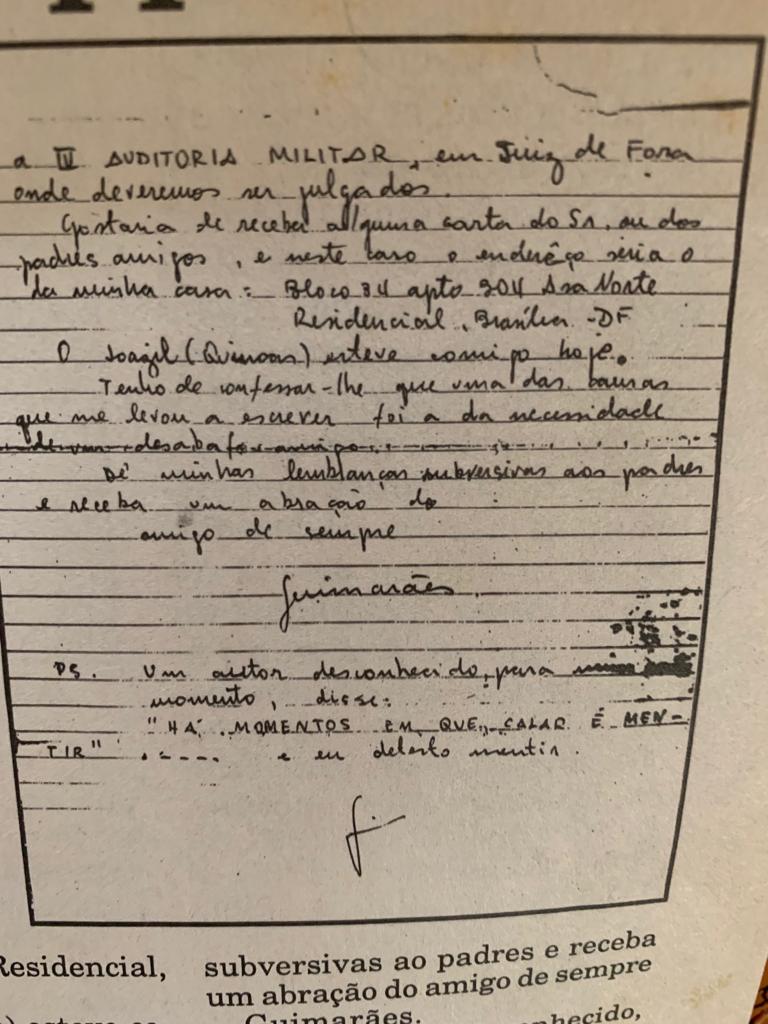 a IV AUDITORIA MILITAR, em Juiz de Fora
onde deveremos ser julgados.
Gostaria de receber alguma carta do Sr. ou dos
padres amigos, e neste caso o enderêço seria o
da minha casa: Bloco 34 apto 204 Asa Norte
Residencial, Brasília - DF
O Joagil (Quincas) esteve comigo hoje.
Tenho de confessar-lhe que uma das causas
que me levou a escrever foi a da necessidade
de um desabafo amigo.
Dê minhas lembranças subversivas aos padres
e receba um abração do
amigo de sempre
Guimarães
PS. Um autor desconhecido, para
momento, disse:
"HÁ MOMENTOS EM QUE CALAR É MEN-
TIR" ..... e eu detesto mentir.
Residencial,
subversivas ao padres e receba
um abração do amigo de sempre
Guimarães.